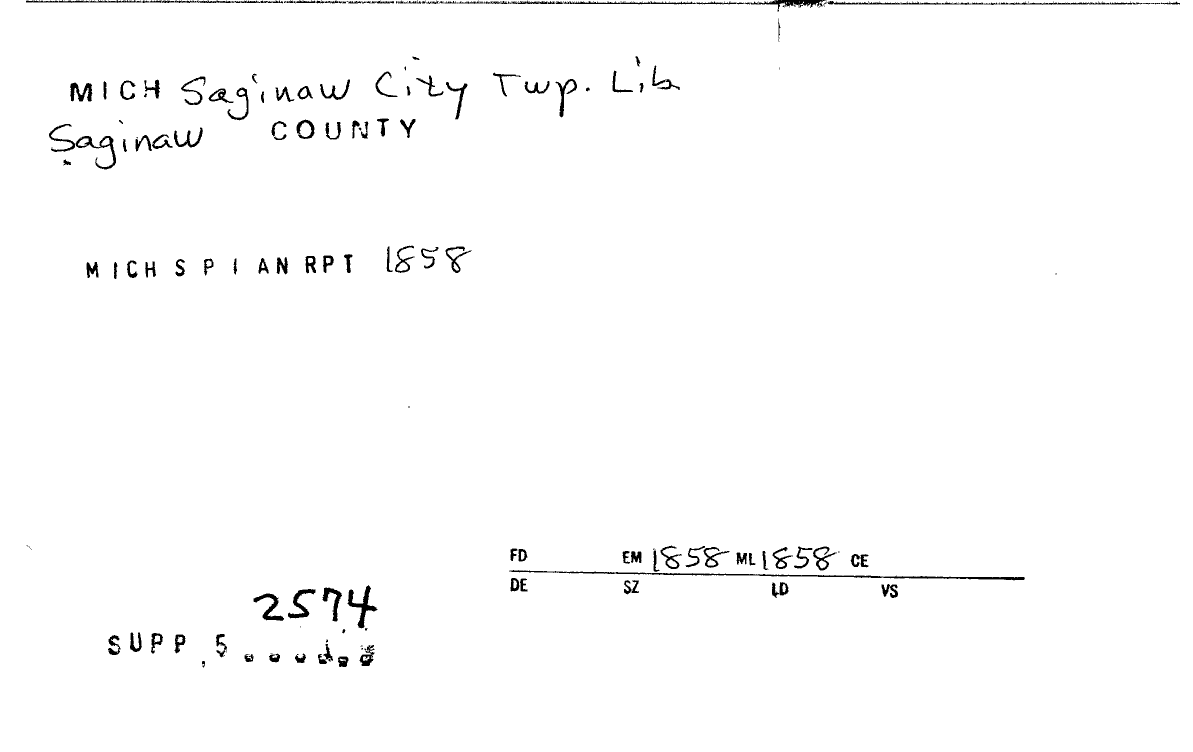 MICH Saginaw City Twp. Lib
Saginaw COUNTY
MICH S P I AN RPT 1858
FD EM 1858 ML 1858 CE
DE SZ LD VS
2574
SUPP. 5